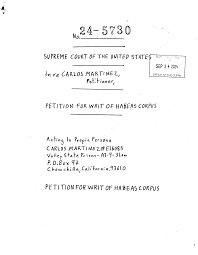 No. 24-5730
SUPREME COURT OF THE UNITED STATES
In re CARLOS MARTINEZ,
Petitioner,
PETITION FOR WRIT OF HABEAS CORPUS
Acting In Propia Persona
CARLOS MARTINEZ
Valley State Prison-
P.O.Box 92
Chowchilla, California, 93610
PETITION FOR WRIT OF HABEAS CORPUS